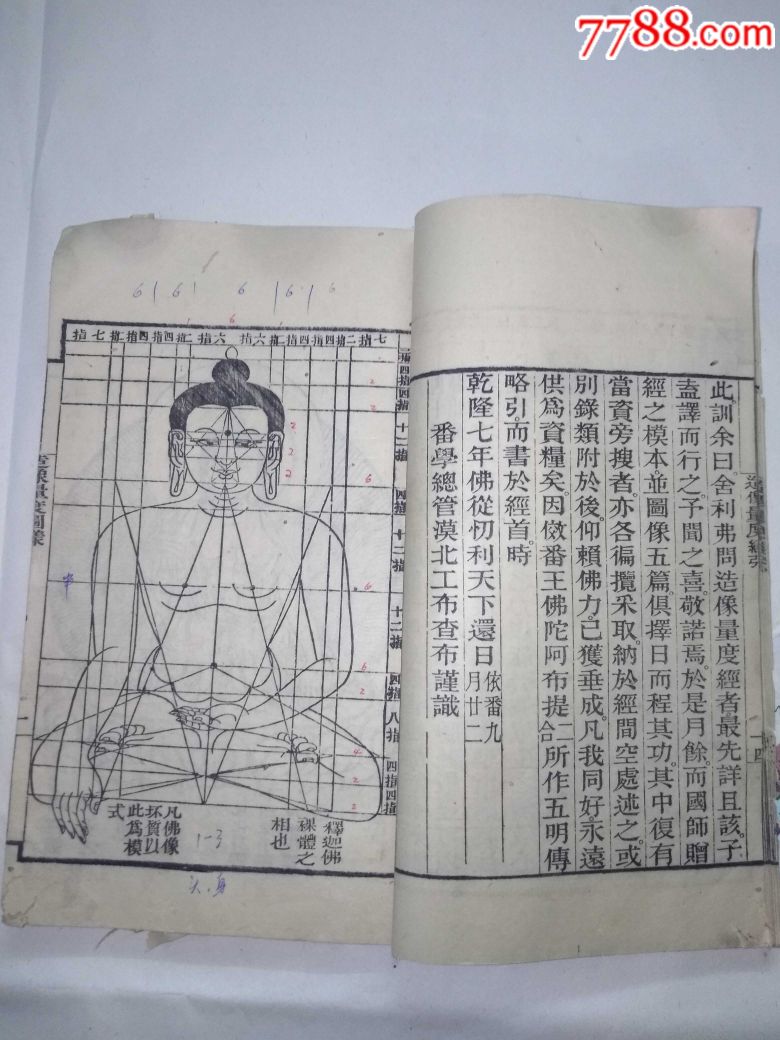 7788.com
造像量度經引
四
此訓余曰。舍利弗問造像量度經者最先詳且該。子
盍譯而行之。予聞之喜。敬諾焉。於是月餘。而國師贈
經之模本並圖像五篇。俱擇日而程其功。其中復有
當資旁搜者。亦各徧攬采取。納於經間空處述之。或
別錄類附於後。仰賴佛力。已獲垂成。凡我同好。永遠
供爲資糧矣。因倣番王佛陀阿布提二合所作五明傳
略引而書於經首。時
乾隆七年佛從忉利天下還日依番九月廿二
番學總管漠北工布查布謹識
6 6 6 6 6
6
七指二指四指四指二指六指六指二指四指四指二指七指
四指
四指
十二指
四指
十二指
十二指
四指
八指
四指
四指
2
2
2
2
6
6
6
2
4
2
2
釋迦佛
裸體之
相也
凡佛像
坏質以
此爲模
式
1-3
頭、身
造像量度圖樣